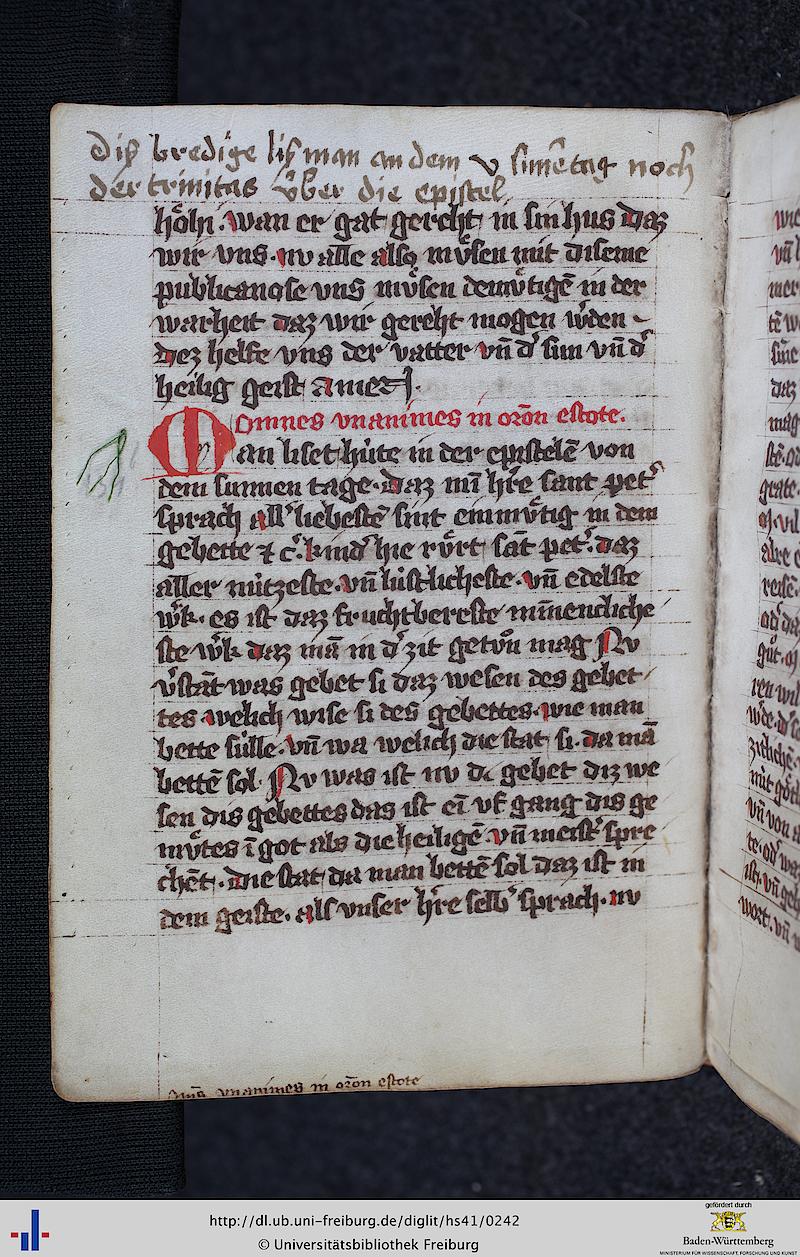 diß bredige liß man an dem v sunnētag noch
der trinitas v̊ber die epistel
hoͤhi. wan er gat gereht in sin hus daz
wir vns. nv alle also mvͤsen mit diseme
publicanose vns mvͤsen demvͤtigē in der
warheit daz wir gereht mogen w̾den
Dez helfe vns der vatter vn̄ d̾ sun vn̄ d̾
heilig geist amen.
Omnes vnanimes in oron̄ estote.
Man liset húte in der epistelē von
dem sunnen tage. Daz min̄ h̾re sant pet̾
sprach all̾ liebestē sint einmvͤtig in dem
gebette ⁊ c̾. kind̾ hie rvͤrt sāt pet̾. daz
aller nútzeste. vn̄ lustlicheste. vn̄ edelste
w̾k. es ist daz fruchtbereste minnencliche
ste w̾k daz mā in d̾ zit getvͦn mag Nv
v̾stāt was gebet si daz wesen des gebet
tes. welich wise si des gebettes. wie man
bette súlle. vn̄ wa welich die stat si. da mā
bettē sol. Nv was ist nv dc gebet diz we
sen dis gebettes das ist ei̅ vf gang dis ge
mvͤtes ī got als die heiligē vn̄ meist̾ spre
chēt. Die stat da man bettē sol daz ist in
dem geiste. als vnser h̾re selb̾ sprach. nv
vnanimes in oron̄ estote
http://dl.ub.uni-freiburg.de/diglit/hs41/0242
© Universitätsbibliothek Freiburg
gefördert durch
Baden-Württemberg
MINISTERIUM FÜR WISSENSCHAFT, FORSCHUNG UND KUNST